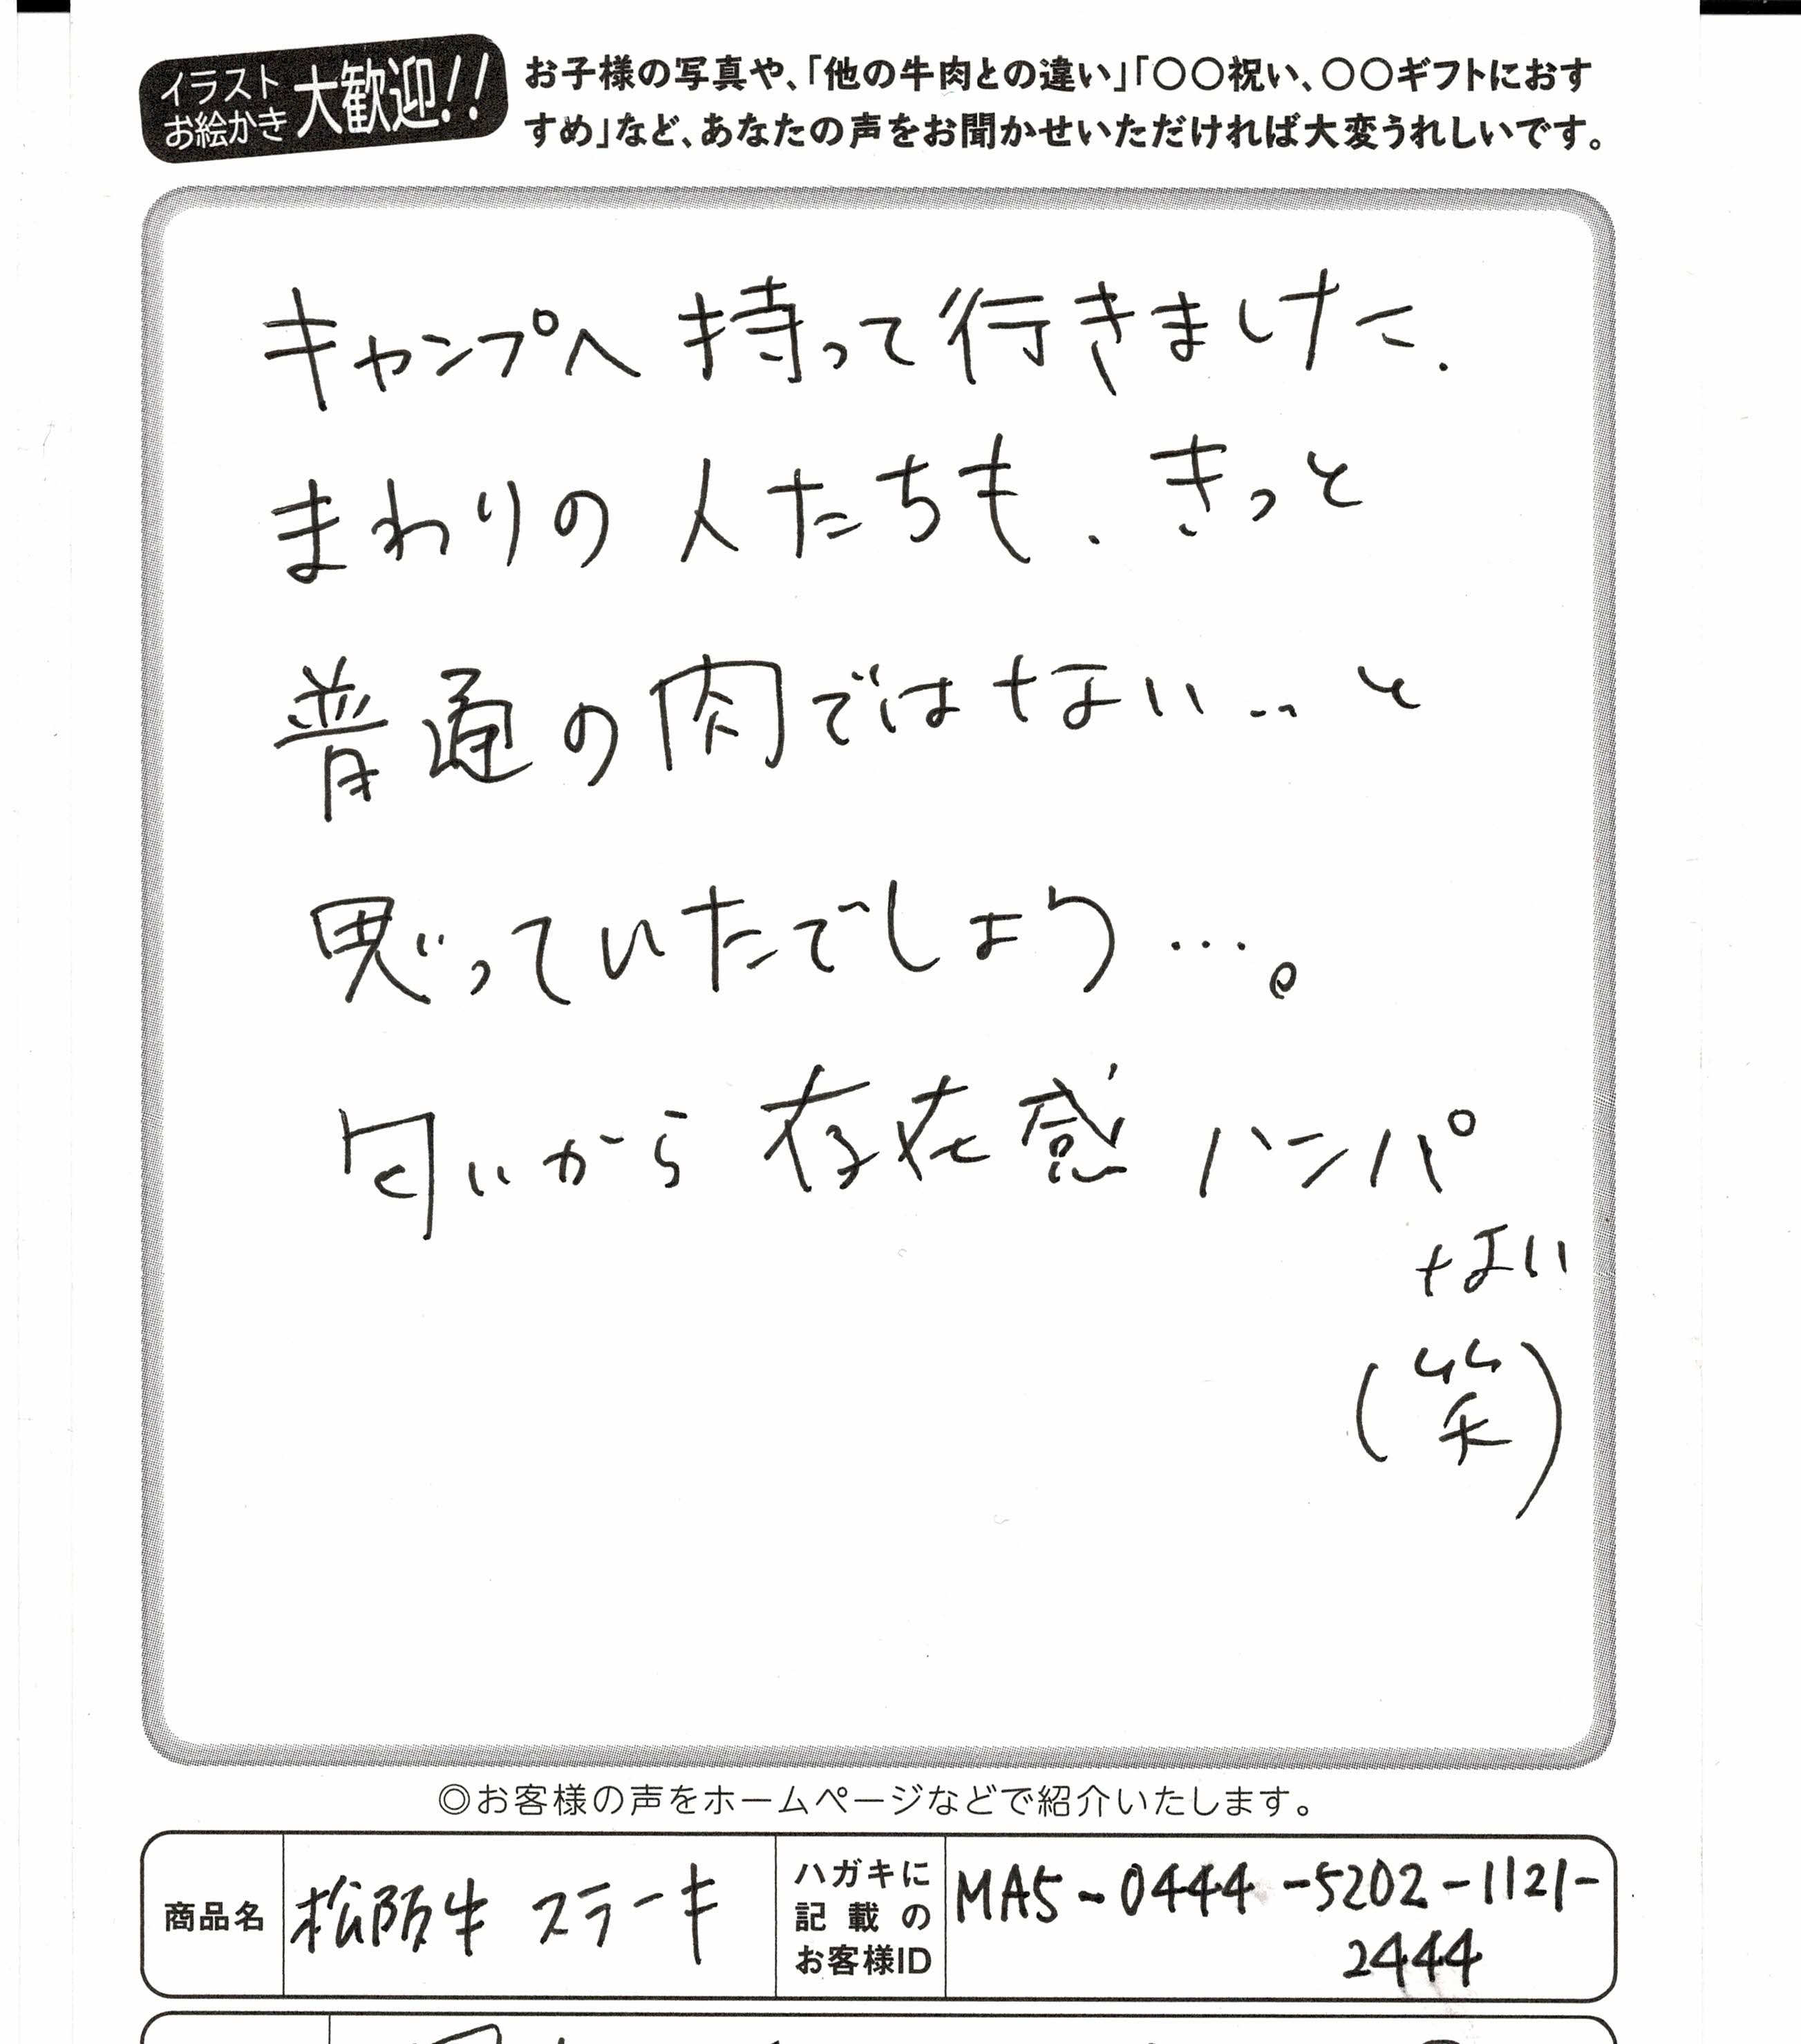 イラスト
お絵かき
大歓迎!!
お子様の写真や、「他の牛肉との違い」「〇〇祝い、〇〇ギフトにおす
すめ」など、あなたの声をお聞かせいただければ大変うれしいです。
キャンプへ 持って行きました.
まわりの人たちも. きっと
普通の肉ではない‥と
思っていたでしょう…。
匂いから存在感ハンパ
ない
(笑)
◎お客様の声をホームページなどで紹介いたします。
商品名
松阪牛 ステーキ
ハガキに
記載の
お客様ID
MA5-0444-5202-1121-
2444